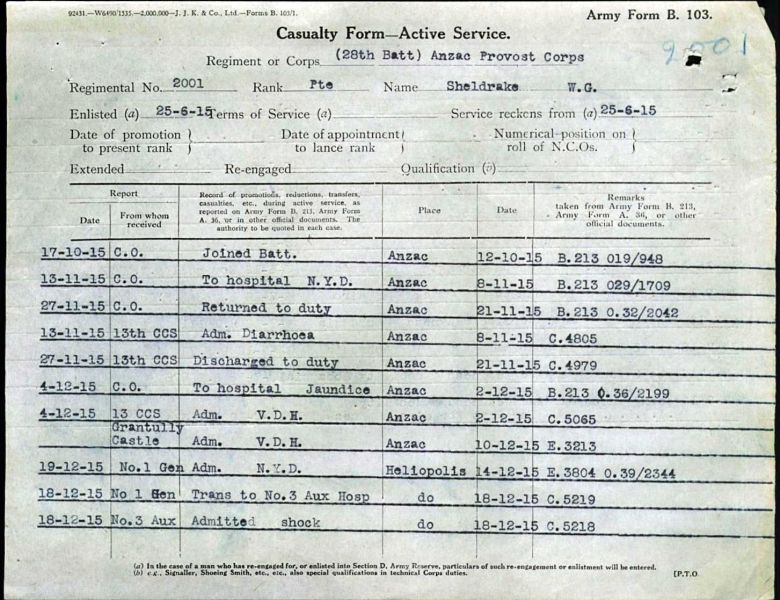 92431.—W6490/1535.—2,000,000—J. J. K. & Co., Ltd.—Forms B. 103/1.
Army Form B. 103.
Casualty Form—Active Service.
2001
Regiment or Corps (28th Batt) Anzac Provost Corps
Regimental No. 2001 Rank Pte Name Sheldrake W.G.
Enlisted (a) 25-6-15 Terms of Service (a) Service reckons from (a) 25-6-15
Date of promotion to present rank } Date of appointment to lance rank } Numerical position on roll of N.C.Os. }
Extended Re-engaged Qualification (b)
Report
Date From whom received
Record of promotions, reductions, transfers, casualties, etc., during active service, as reported on Army Form B. 213, Army Form A. 36, or in other official documents. The authority to be quoted in each case.
Place
Date
Remarks
taken from Army Form B. 213, Army Form A. 36, or other official documents.
17-10-15 C.O. Joined Batt. Anzac 12-10-15 B.213 019/948
13-11-15 C.O. To hospital N.Y.D. Anzac 8-11-15 B.213 029/1709
27-11-15 C.O. Returned to duty Anzac 21-11-15 B.213 0.32/2042
13-11-15 13th CCS Adm. Diarrhoea Anzac 8-11-15 C.4805
27-11-15 13th CCS Discharged to duty Anzac 21-11-15 C.4979
4-12-15 C.O. To hospital Jaundice Anzac 2-12-15 B.213 0.36/2199
4-12-15 13 CCS Adm. V.D.H. Anzac 2-12-15 C.5065
Grantully
Castle Adm. V.D.H. Anzac 10-12-15 E.3213
19-12-15 No.1 Gen Adm. N.Y.D. Heliopolis 14-12-15 E.3804 0.39/2344
18-12-15 No 1 Gen Trans to No.3 Aux Hosp do 18-12-15 C.5219
18-12-15 No.3 Aux Admitted shock do 18-12-15 C.5218
(a) In the case of a man who has re-engaged for, or enlisted into Section D, Army Reserve, particulars of such re-engagement or enlistment will be entered.
(b) e.g., Signaller, Shoeing Smith, etc., etc., also special qualifications in technical Corps duties.
[P.T.O